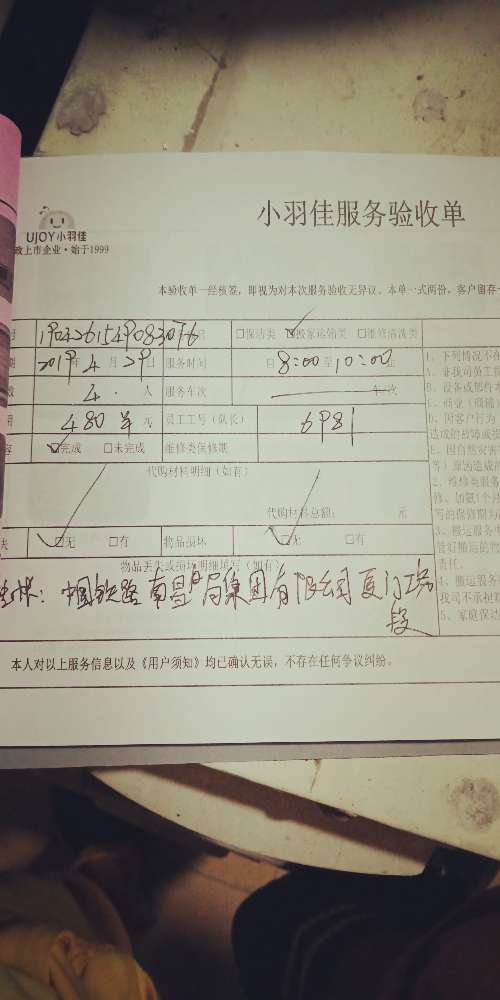 小羽佳服务验收单
UJOY小羽佳
政上市企业·始于1999
本验收单一经核签，即视为对本次服务验收无异议。本单一式两份，客户留存一
□保洁类 ☑搬家运输类 □维修清洗类
2019年 4月29日 服务时间 自8:00至10:00止
4.人 服务车次 车/次
480 元 员工工号（队长） 6981
☑完成 □未完成 维修类保修期
代购材料明细（如有）
代购材料总额： 元
☑无 □有 物品损坏 ☑无 □有
物品丢失或损坏明细填写（如有）
中国铁路南昌局集团有限公司厦门工务
段
本人对以上服务信息以及《用户须知》均已确认无误，不存在任何争议纠纷。
1、下列情况不在
A、非我司员工
B、设备或部件本
D、因客户行为
造成的故障或损
E、因自然灾害
等）原因造成
2、维修类服务
写的保修期为
3、搬运服务中
管好搬运的物
责任。
4、搬运服务
我司不承担
5、家庭保洁